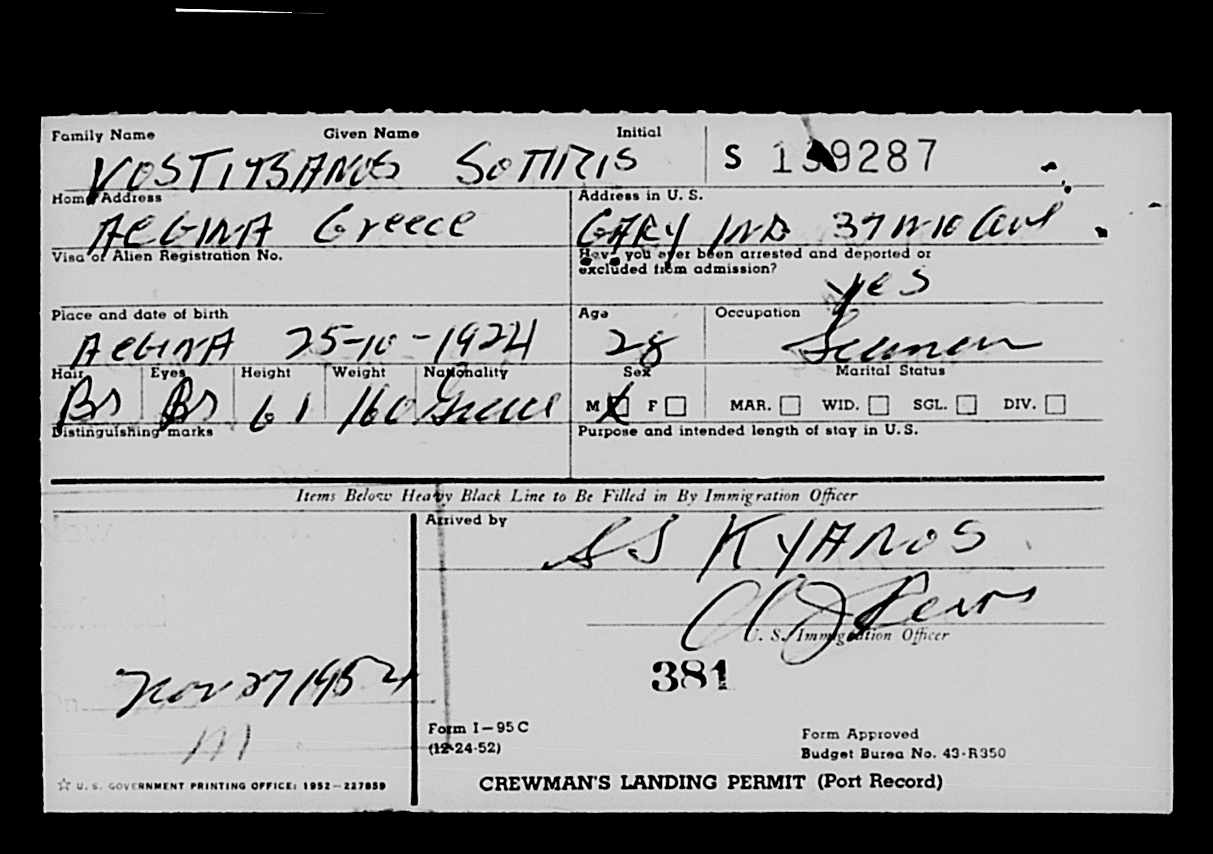 Family Name Given Name Initial
SOTIRIS S 139287
Home Address Address in U. S.
AEGINA Greece GARY IND 37
Visa or Alien Registration No. Have you ever been arrested and deported or
excluded from admission?
yes
Place and date of birth Age Occupation
AEGINA 25-10-1924 28 Seaman
Hair Eyes Height Weight Nationality Sex Marital Status
Br Br 6 1 160 Greece M F MAR. WID. SGL. DIV.
Distinguishing marks Purpose and intended length of stay in U. S.
Items Below Heavy Black Line to Be Filled in By Immigration Officer
Arrived by
SS KYANOS
U. S. Immigration Officer
381
Nov 27 1954
Form I-95 C
(12-24-52)
Form Approved
Budget Burea No. 43-R350
☆ U. S. GOVERNMENT PRINTING OFFICE: 1952-227859
CREWMAN'S LANDING PERMIT (Port Record)